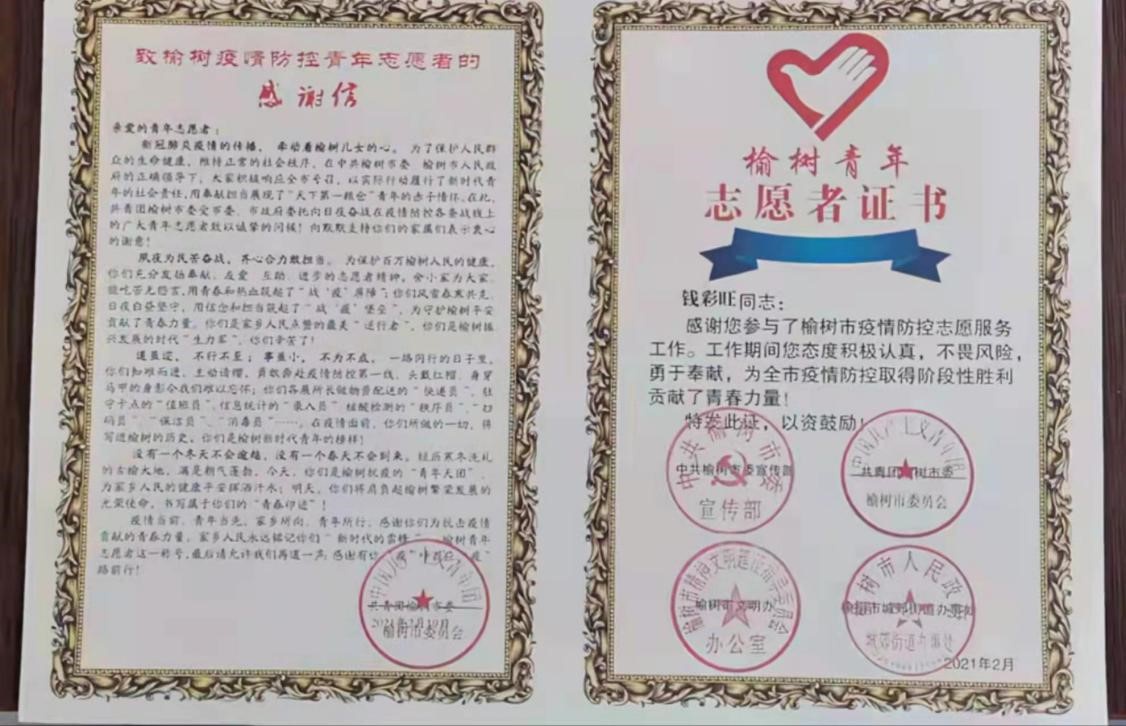 致榆树疫情防控青年志愿者的
感谢信
亲爱的青年志愿者：
新冠肺炎疫情的传播，牵动着榆树儿女的心。为了保护人民群
众的生命健康，维持正常的社会秩序，在中共榆树市委 榆树市人民政
府的正确领导下，大家积极响应全市号召，以实际行动履行了新时代青
年的社会责任，用奉献担当展现了“天下第一粮仓”青年的赤子情怀。在此，
共青团榆树市委受市委、市政府委托向日夜奋战在疫情防控各条战线上
的广大青年志愿者致以诚挚的问候！向默默支持你们的家属们表示衷心
的谢意！
夙夜为民苦奋战，齐心合力敢担当。为保护百万榆树人民的健康，
你们充分发扬奉献、友爱 互助、进步的志愿者精神，舍小家为大家，
能吃苦无怨言，用青春和热血筑起了“战‘疫’屏障”；你们风雪春寒共克，
日夜白昼坚守，用信念和担当筑起了“战‘疫’堡垒”，为守护榆树平安
贡献了青春力量。你们是家乡人民点赞的最美“逆行者”，你们是榆树振
兴发展的时代“生力军”，你们辛苦了！
道虽迩，不行不至；事虽小，不为不成。一路同行的日子里，
你们知难而进、主动请缨，勇敢奔赴疫情防控第一线。头戴红帽、身穿
马甲的身影令我们难以忘怀；你们各展所长做物资配送的“快递员”、驻
守卡点的“值班员”、信息统计的“录入员” 核酸检测的“秩序员”、“扫
码员”、“保洁员”、“消毒员”……在疫情面前，你们所做的一切，将
写进榆树的历史，你们是榆树新时代青年的榜样！
没有一个冬天不会逾越，没有一个春天不会到来。经历寒冬洗礼
的古榆大地，满是朝气蓬勃，今天，你们是榆树抗疫的“青年大团”，
为家乡人民的健康平安挥洒汗水；明天，你们将肩负起榆树繁荣发展的
光荣使命，书写属于你们的“青春印迹”！
疫情当前，青年当先，家乡所向，青年所行，感谢你们为抗击疫情
贡献的青春力量，家乡人民永远铭记你们“新时代的雷锋” 榆树青年
志愿者这一称号，最后请允许我们再道一声：感谢有你
路前行！
共青团榆树市委
2021年2月10日
榆树市委员会
榆树青年
志愿者证书
钱彩旺同志：
感谢您参与了榆树市疫情防控志愿服务
工作。工作期间您态度积极认真，不畏风险，
勇于奉献，为全市疫情防控取得阶段性胜利
贡献了青春力量！
特发此证，以资鼓励！
中共榆树市委
中共榆树市委宣传部
宣传部
中国共产主义青年团
共青团榆树市委
榆树市委员会
榆树市精神文明建设指导委员会
榆树市文明办
办公室
榆树市人民政府
榆树市城郊街道办事处
城郊街道办事处
2021年2月